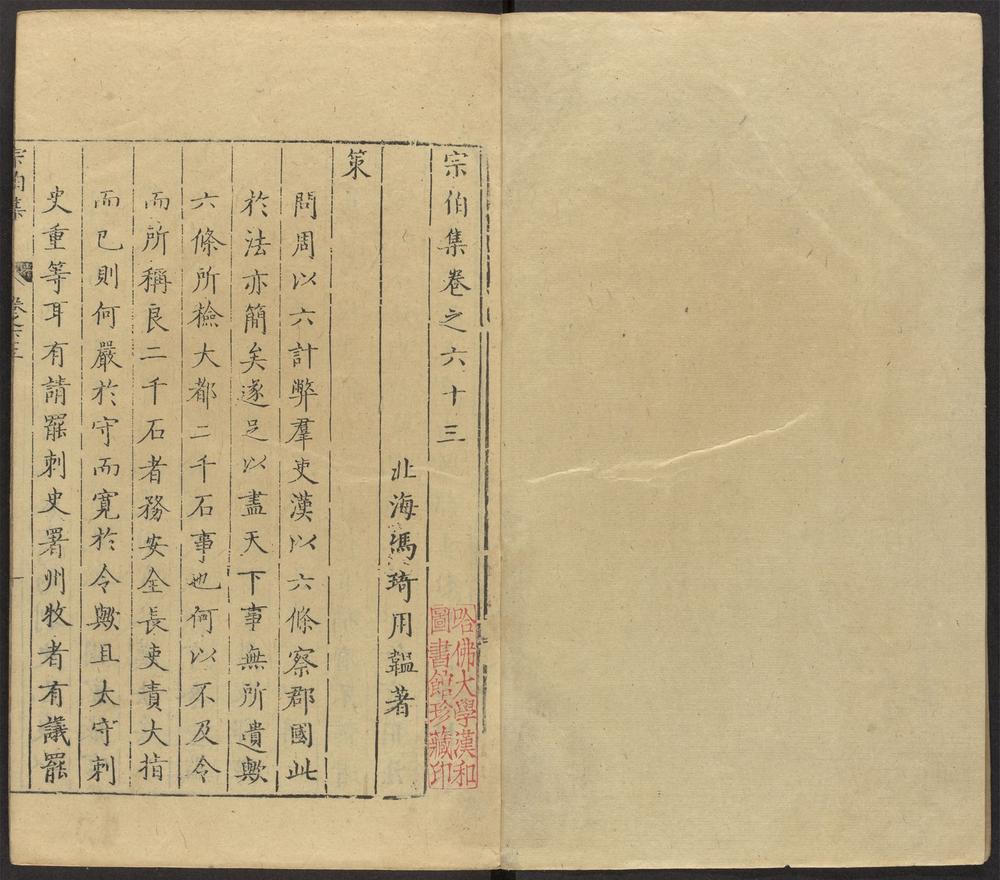 宗伯集卷之六十三
北海馮琦用韞著
策
問周以六計弊羣吏漢以六條察郡國此
於法亦簡矣遂足以盡天下事無所遺歟
六條所檢大都二千石事也何以不及令
而所稱良二千石者務安全長吏責大指
而已則何嚴於守而寬於令歟且太守刺
史重等耳有請罷刺史署州牧者有議罷
宗伯集
卷之六十三
一
哈佛大學漢和
圖書館珍藏印